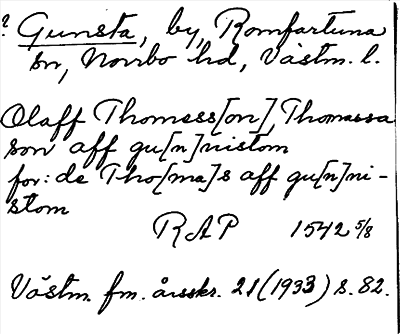 ? Gunsta, by, Romfartuna
sn, Norrbo hd, Västm. l.
Olaff Thomess[on], Thomassa
son aff gu[n]nistom
for: de Tho[ma]s aff gu[n]ni-
stom
RAP 1542 5/8
Västm. fm. årsskr. 21 (1933) s. 82.